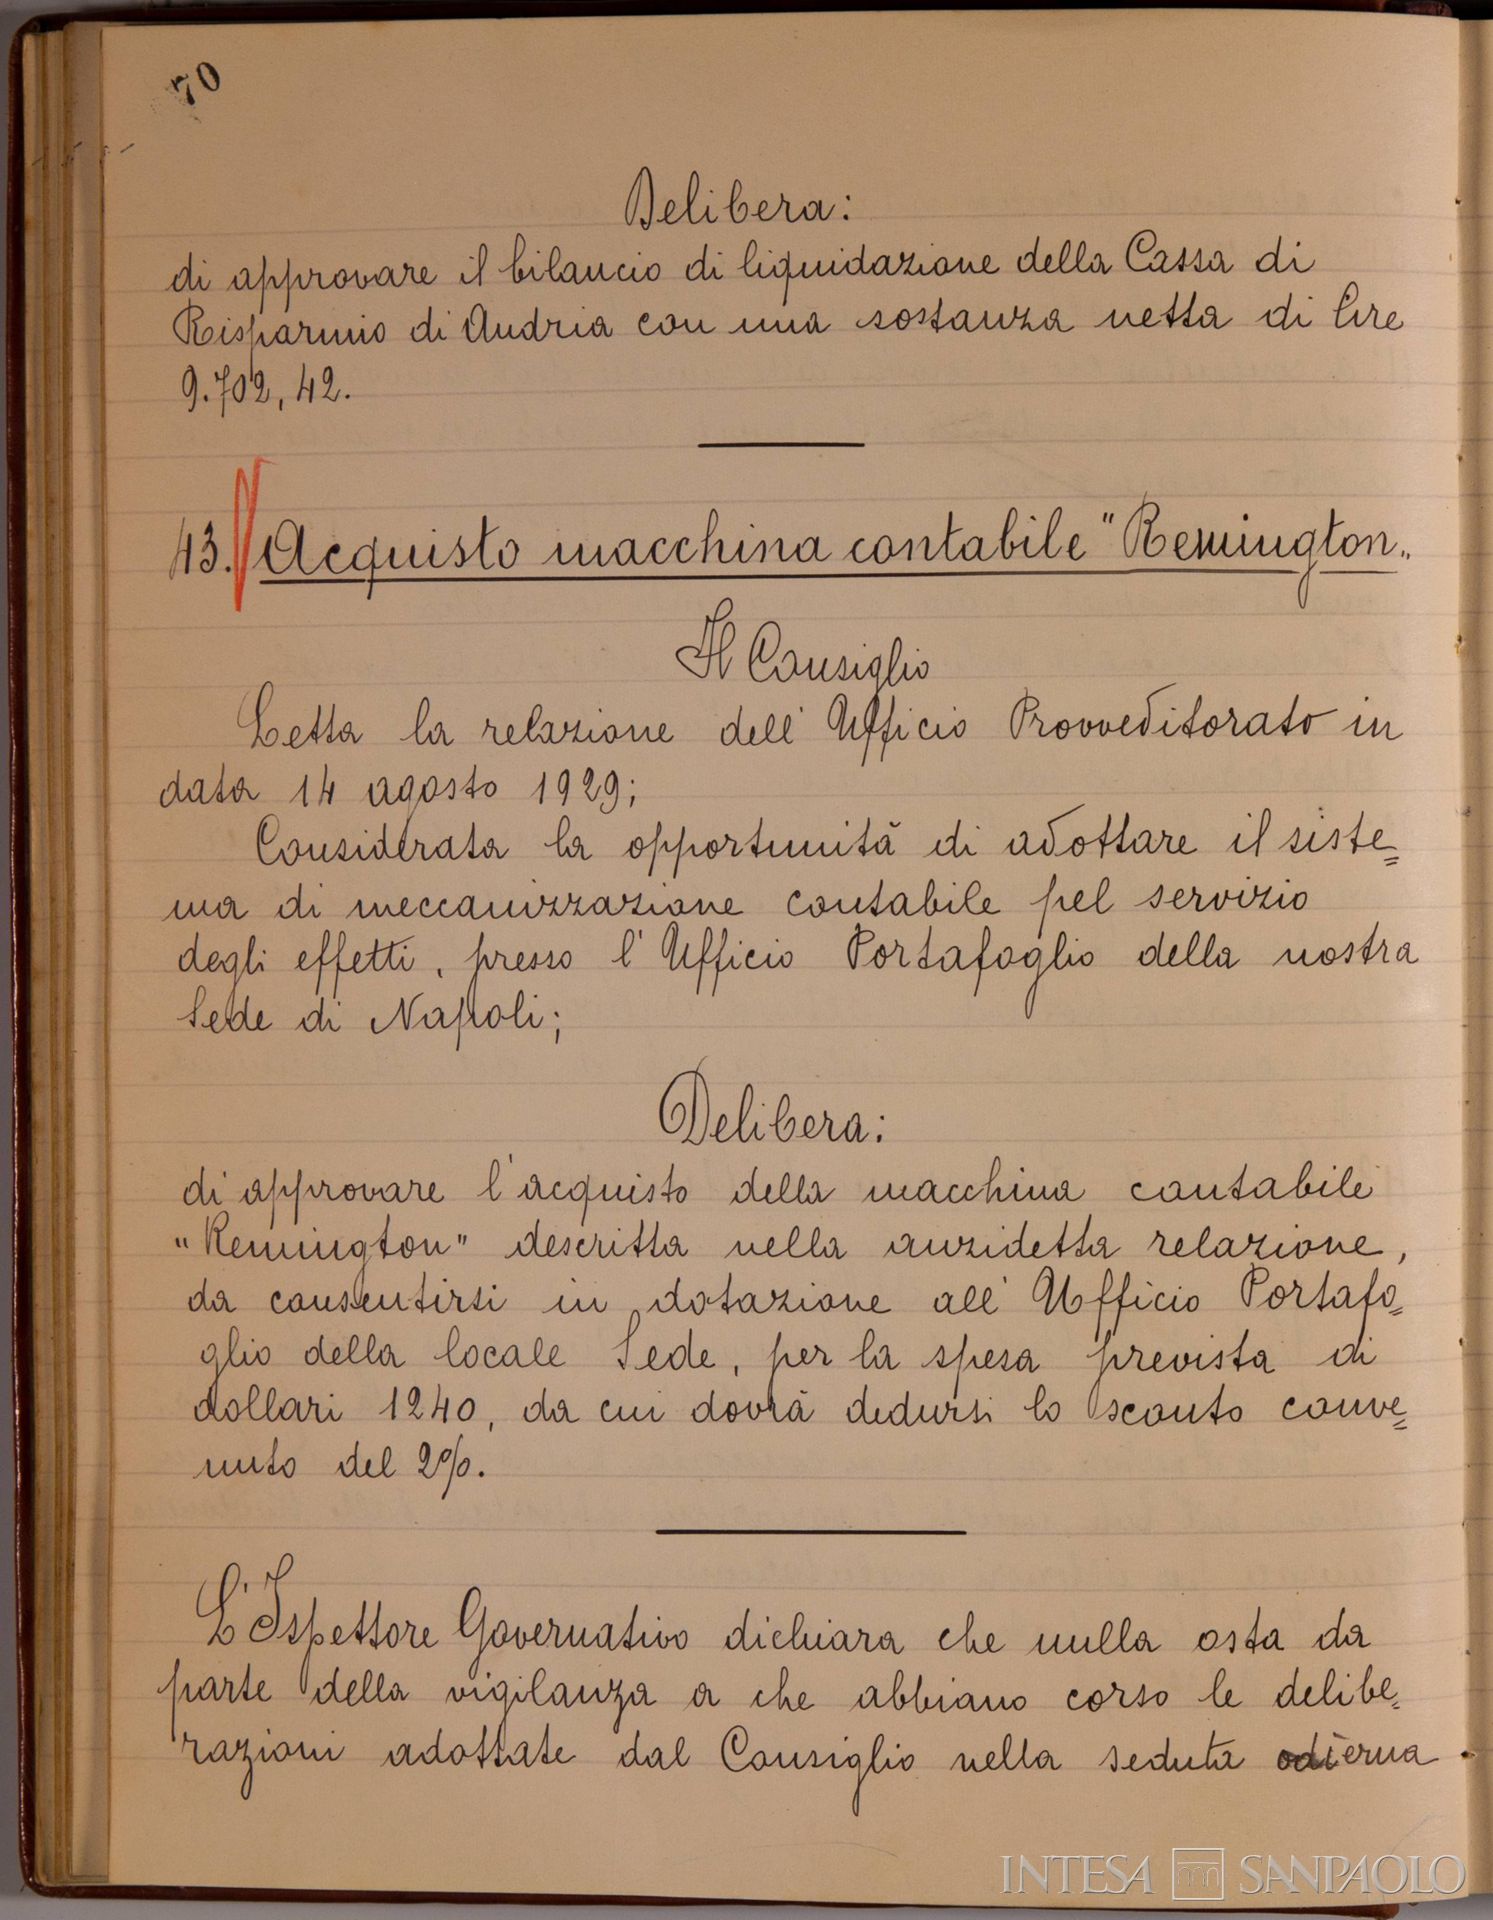 70
Delibera:
di approvare il bilancio di liquidazione della Cassa di
Risparmio di Andria con una sostanza netta di lire
9.702,42.
43. Acquisto macchina contabile "Remington„
Il Consiglio
Letta la relazione dell'Ufficio Provveditorato in
data 14 agosto 1929;
Considerata la opportunità di adottare il siste=
ma di meccanizzazione contabile pel servizio
degli effetti, presso l'Ufficio Portafoglio della nostra
Sede di Napoli;
Delibera:
di approvare l'acquisto della macchina contabile
"Remington" descritta nella anzidetta relazione,
da consentirsi in dotazione all'Ufficio Portafo=
glio della locale Sede, per la spesa prevista di
dollari 1240, da cui dovrà dedursi lo sconto conve=
nuto del 2%.
L'Ispettore Governativo dichiara che nulla osta da
parte della vigilanza a che abbiano corso le delibe=
razioni adottate dal Consiglio nella seduta odierna.
INTESA SANPAOLO